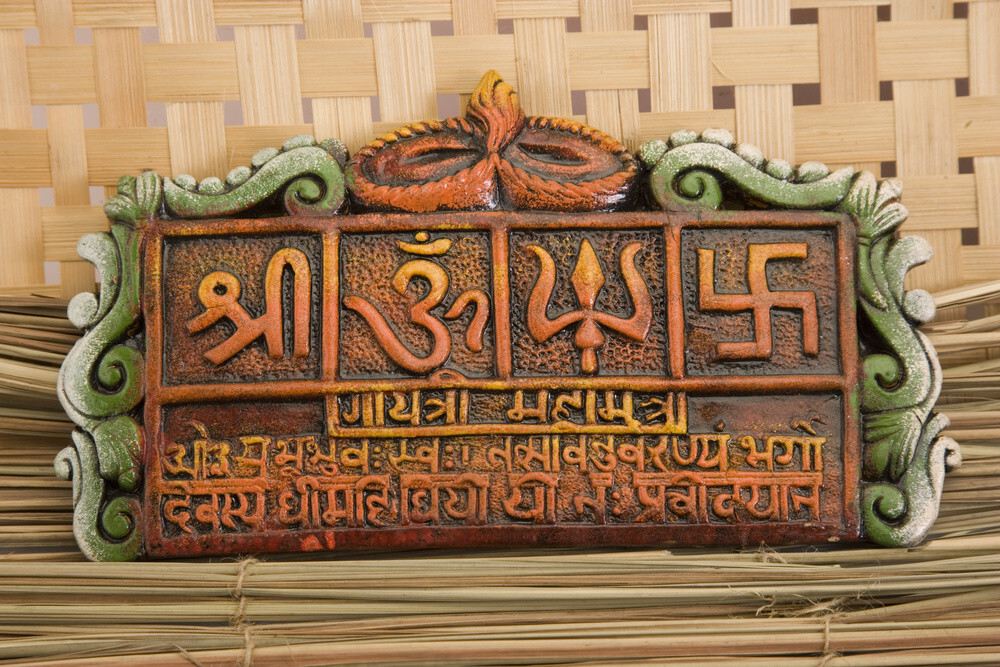 श्री ॐ 卐
गायत्री महामंत्र
ओ३म भूर्भुवः स्वः। तत्सवितुर्वरेण्यं भर्गो
देवस्य धीमहि धियो यो नः प्रचोदयात